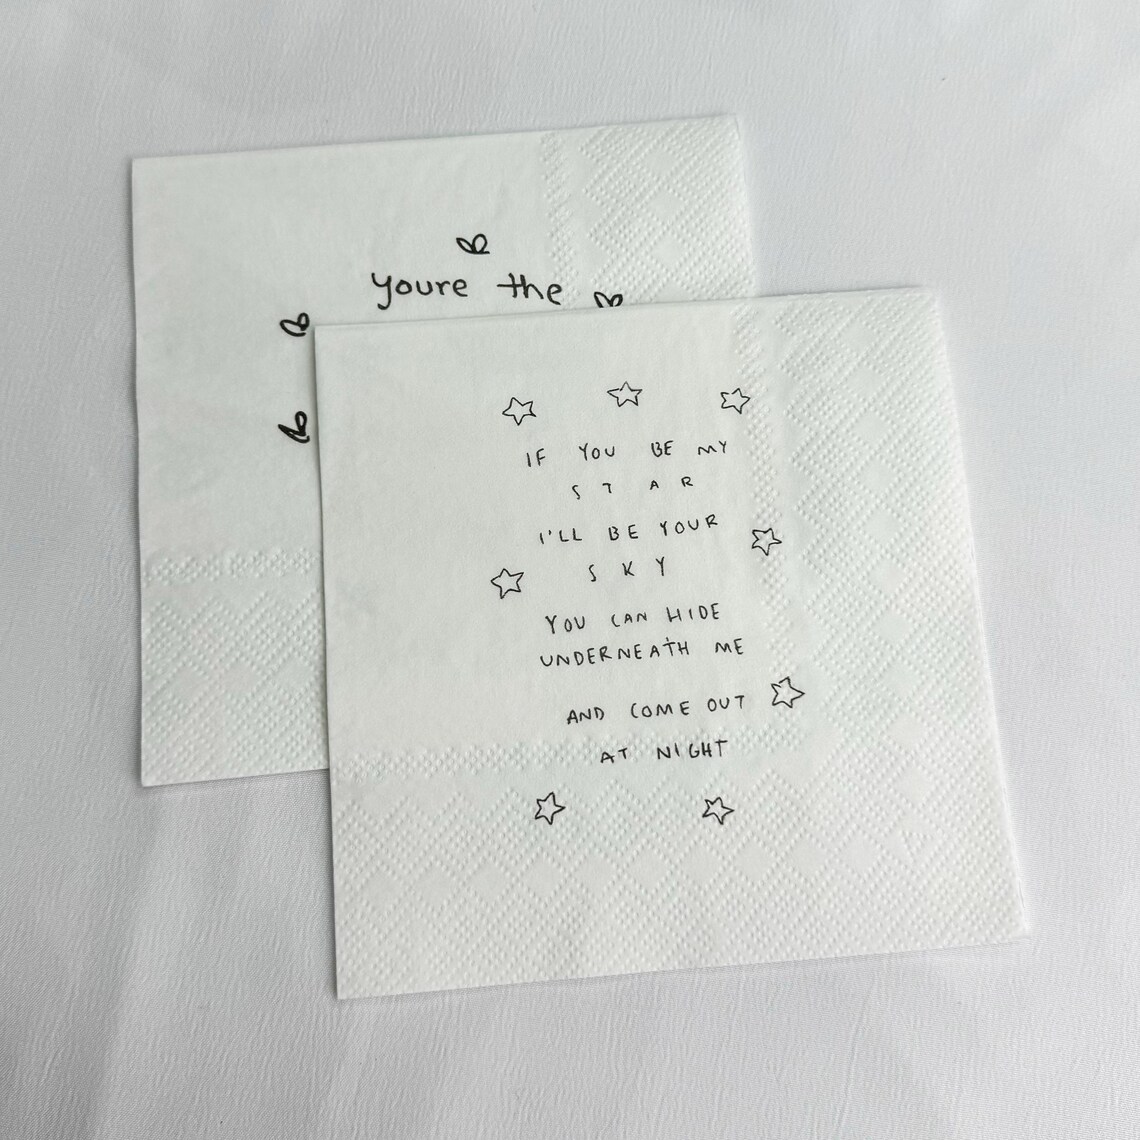 youre the
IF YOU BE MY
STAR
I'LL BE YOUR
SKY
YOU CAN HIDE
UNDERNEATH ME
AND COME OUT
AT NIGHT